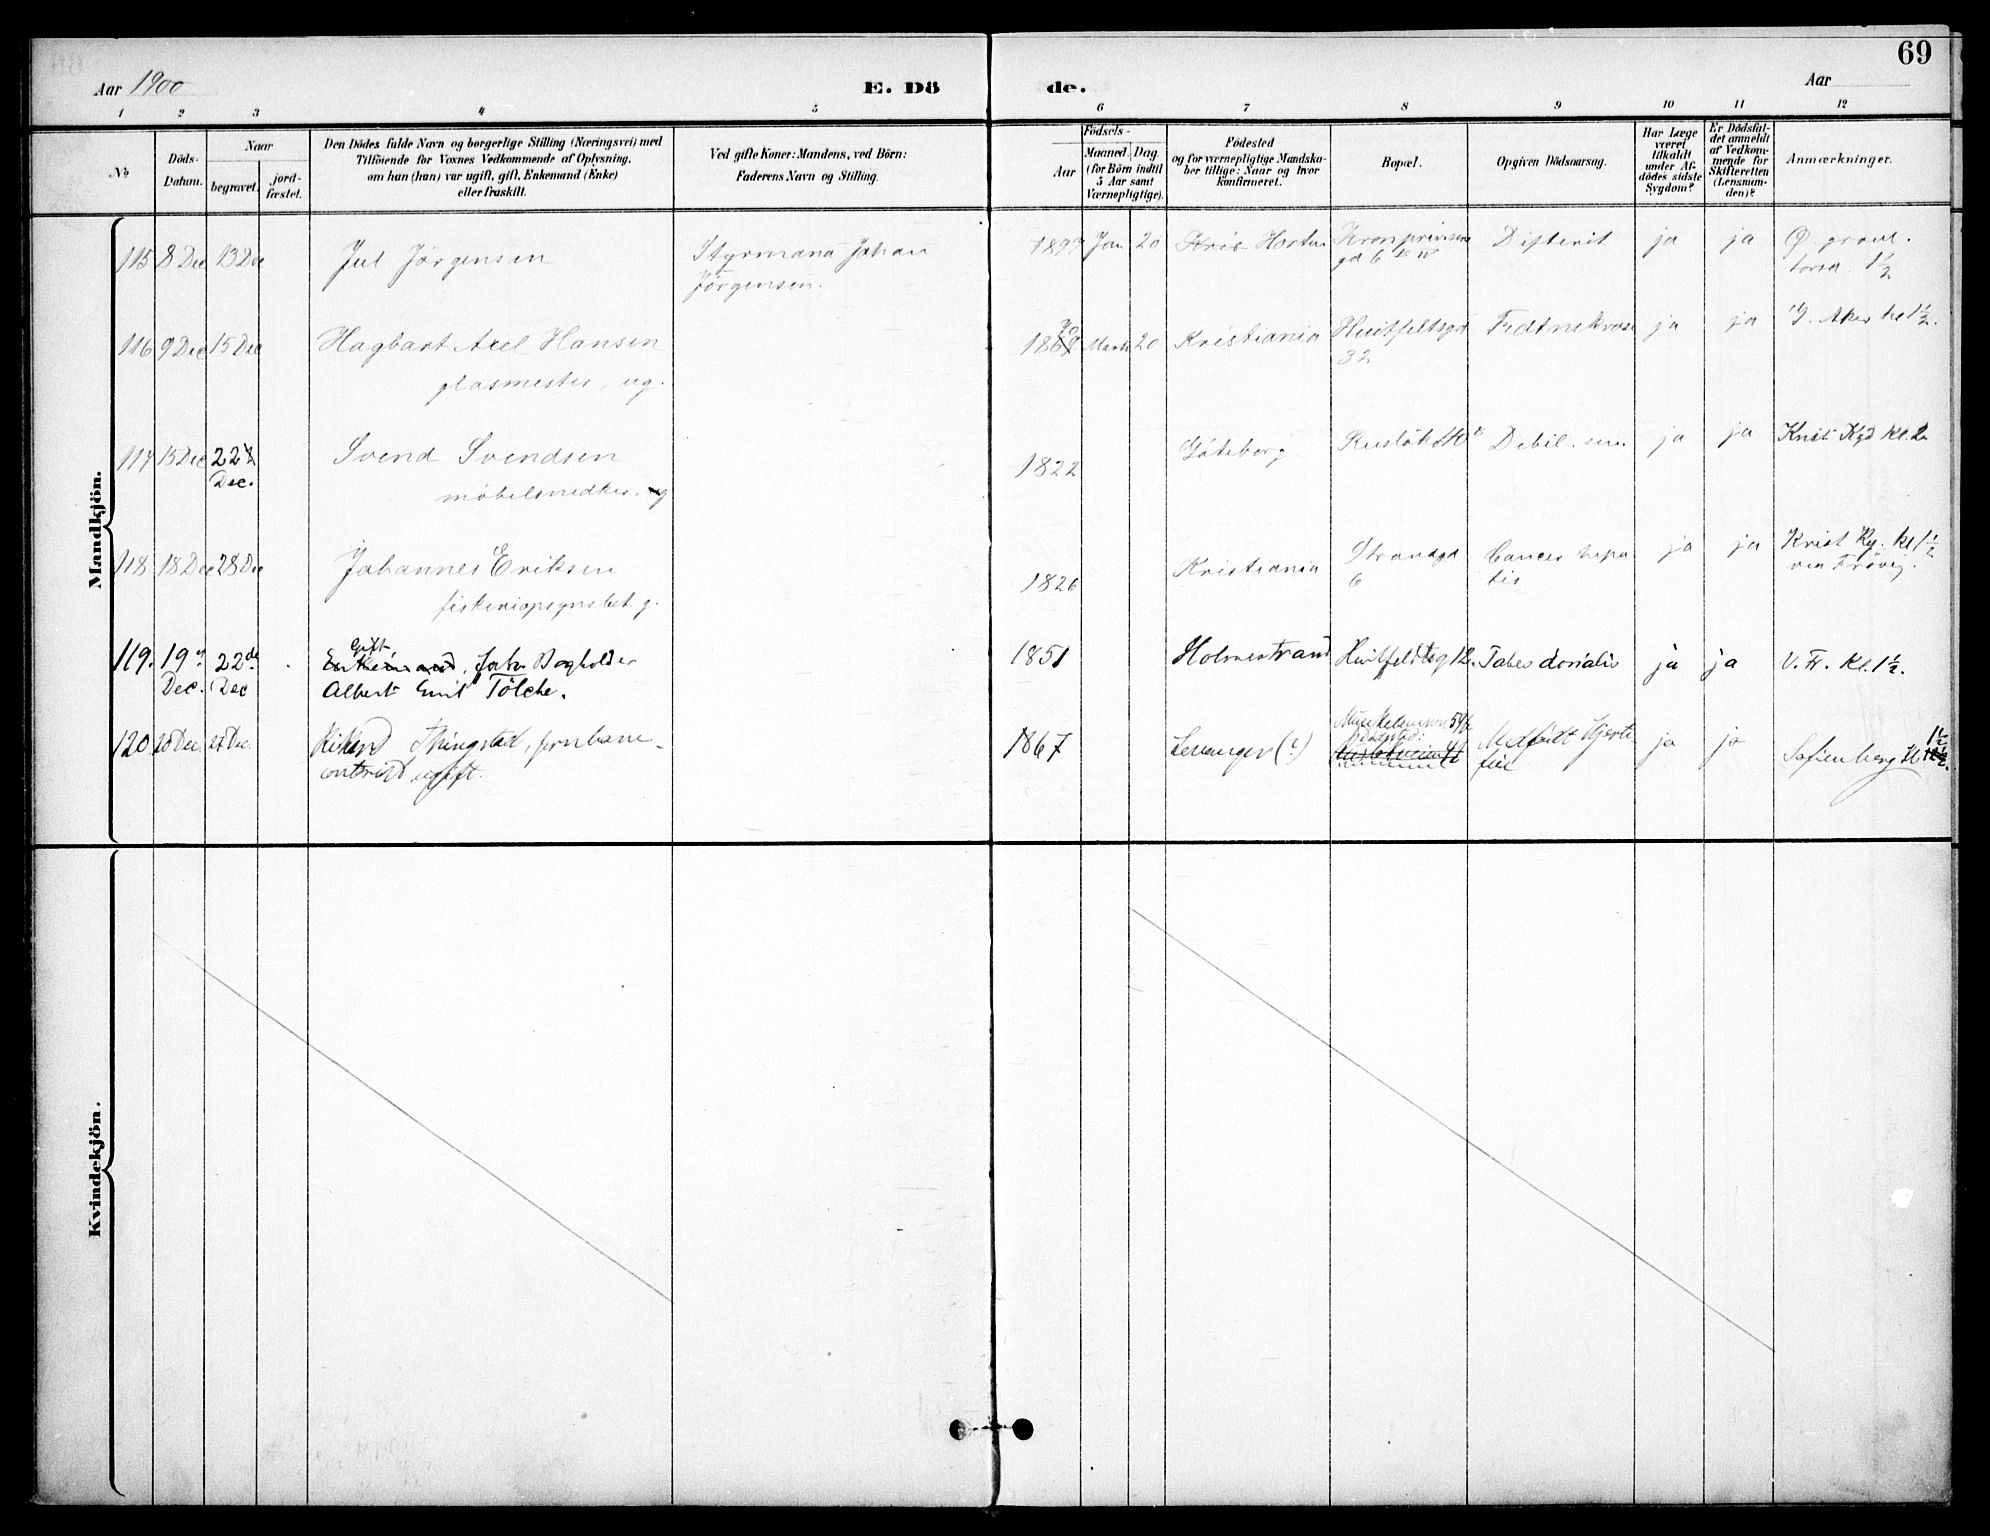 69
Aar 1900
E. Dö
de.
Aar
1 2 3 4 5 6 7 8 9 10 11 12
№
Döds-
Datum.
Naar
begravet.
jord-
fæstet.
Den Dödes fulde Navn og borgerlige Stilling (Næringsvei) med
Tilföiende for Voxnes Vedkommende af Oplysning,
om han (hun) var ugift, gift, Enkemand (Enke)
eller fraskilt.
Ved gifte Koner: Mandens, ved Börn:
Faderens Navn og Stilling.
Födsels-
Aar
Maaned. Dag.
(for Börn indtil
5 Aar samt
Værnepligtige).
Födested
og for værnepligtige Mandska-
ber tillige: Naar og hvor
konfirmeret.
Bopæl.
Opgiven Dödsaarsag.
Har Læge
været
tilkaldt
under Af-
dödes sidste
Sygdom?
Er Dödsfal-
det anmeldt
af Vedkom-
mende for
Skifteretten
(Lensman-
den)?
Anmærkninger.
Mandkjön.
115 8 Dec 13 Dec Jul Jörgensen Styrmand Johan
Jörgensen.
1897 Jan 20 Kris Horten Kronprinsens
gd 6 Difterit ja ja Ø. gravl.
1½
116 9 Dec 15 Dec Hagbart Axel Hansen
glasmester, ug.
1869 70 Marts 20 Kristiania Huitfeltsgd
32 ja ja V. Aker kl 1½.
117 15 Dec 22 Dec. Svend Svendsen
möbelsnedker. g
1822 Göteborg Ruslök Debil. sen. ja ja Krist Kgd kl. 2
118 18 Dec 28 Dec Johannes Eriksen
g.
1826 Kristiania Strandgd
6 Cancer hepa
tis ja ja Krist Kg. kl 1½
119. 19 Dec. 22de Dec Gift
Enkemand, Bogholder
Albert Emil Tölche.
1851 Holmestrand Huitfeldtsg 12. Tabes dorsalis ja ja V. Fr. Kl. 1½.
120 20 Dec. 27 Dec. Thingstad, jernbane-
ugift.
1867 Levanger (?) Medfödt Hjerte
feil ja ja Sofienberg kl 1½
Kvindekjön.